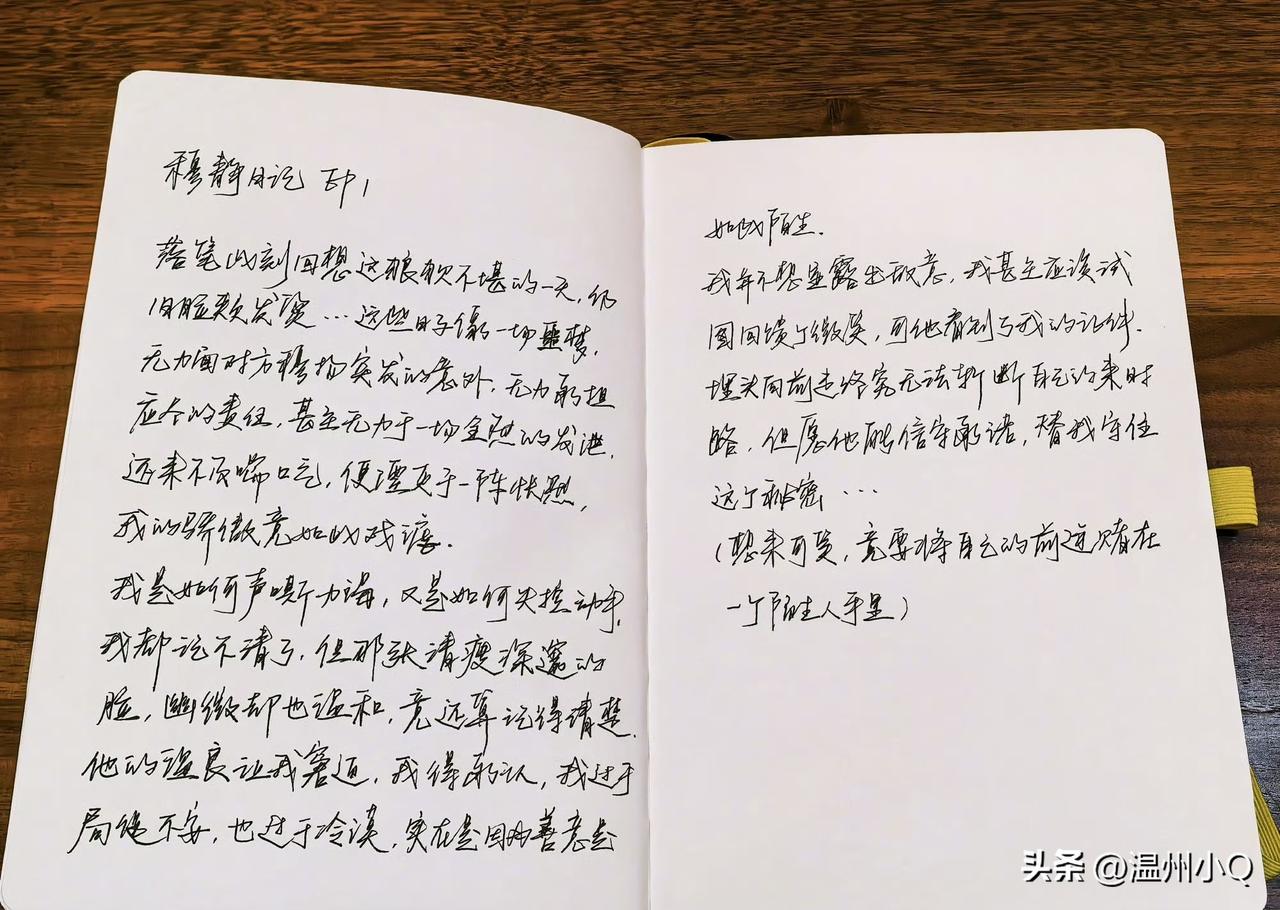 穆静日记 EP1
落笔此刻回想这狼狈不堪的一天，仍
旧脸颊发烫…这些日子像一场噩梦，
无力面对方穆扬突发的意外，无力承担
应分的责任，甚至无力于一场全烈的发泄，
还来不及喘口气，便湮灭于一阵怅然，
我的骄傲竟如此戏谑.
我是如何声嘶力竭，又是如何失控动手，
我都记不清了，但那张清瘦深邃的
脸，幽微却也温和，竟还算记得清楚.
他的温良让我窘迫，我得承认，我过于
局促不安，也过于冷漠，实在是因为善意是
如此陌生.
我并不想显露出敌意，我甚至应该试
图回馈个微笑，可他看到了我的证件.
埋头向前走终究无法斩断自己的来时
路，但愿他能信守承诺，替我守住
这个秘密…
（想来可笑，竟要将自己的前途赌在
一个陌生人手里）
头条 @温州小Q